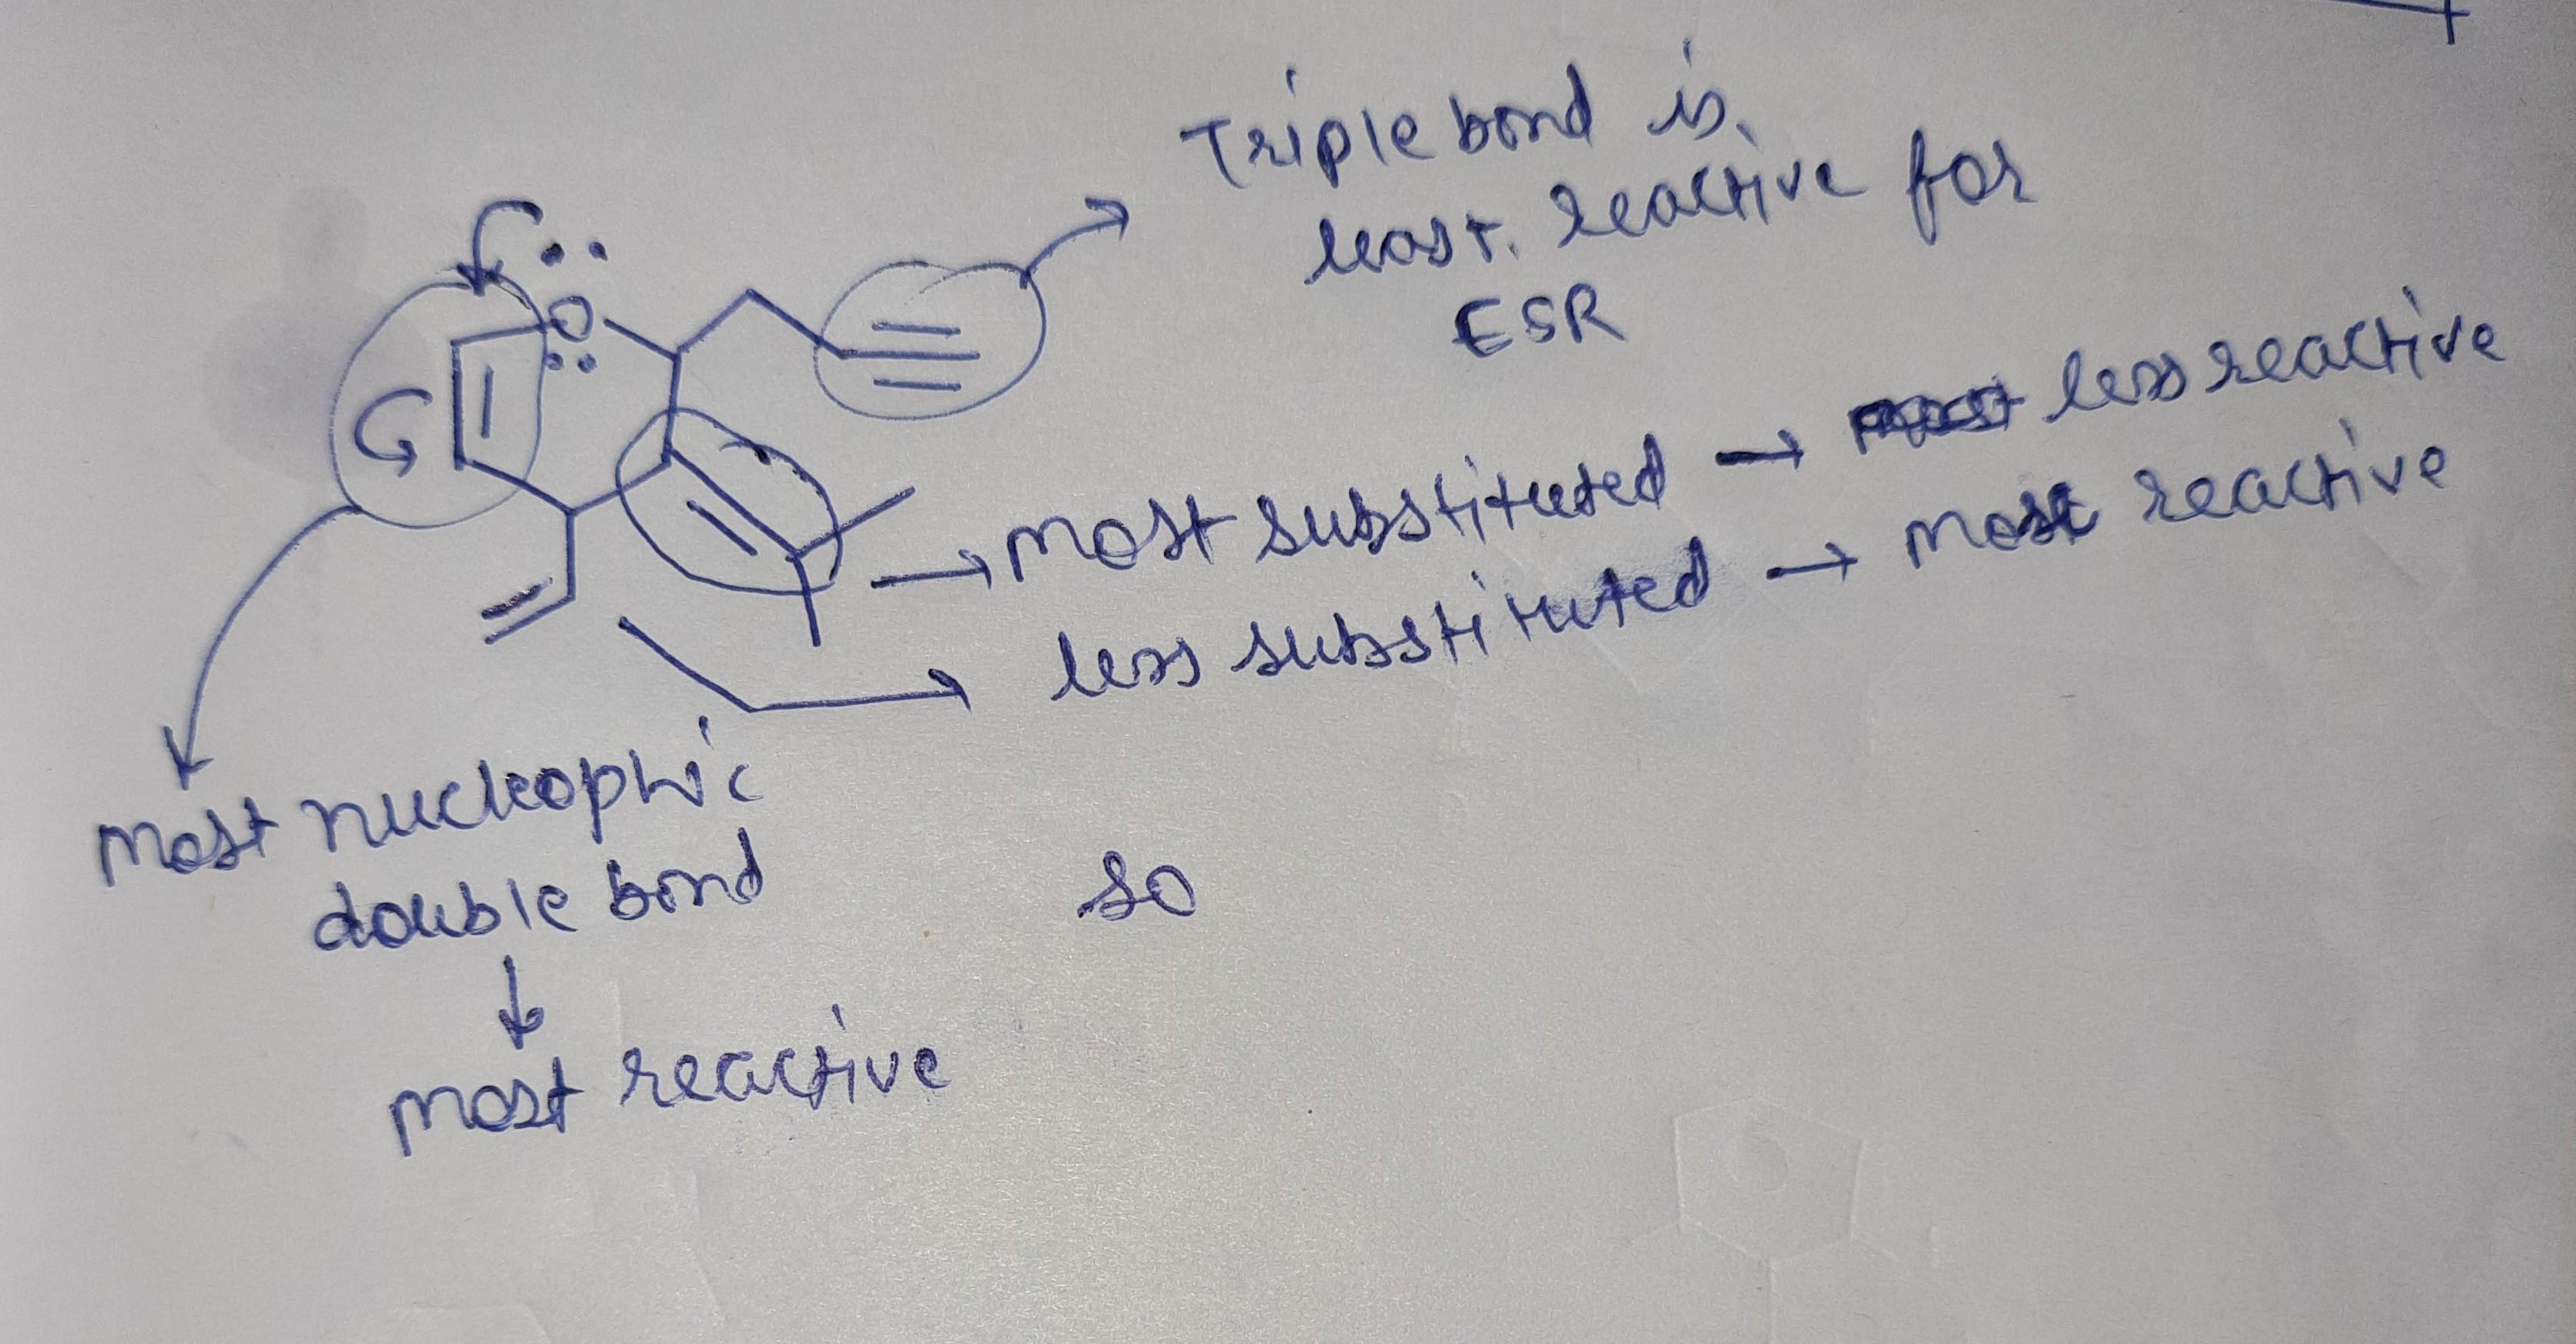 Triple bond is
least. reactive for
ESR
O
most substituted → less reactive
less substituted → most reactive
most nucleophic
double bond
↓
most reactive
so